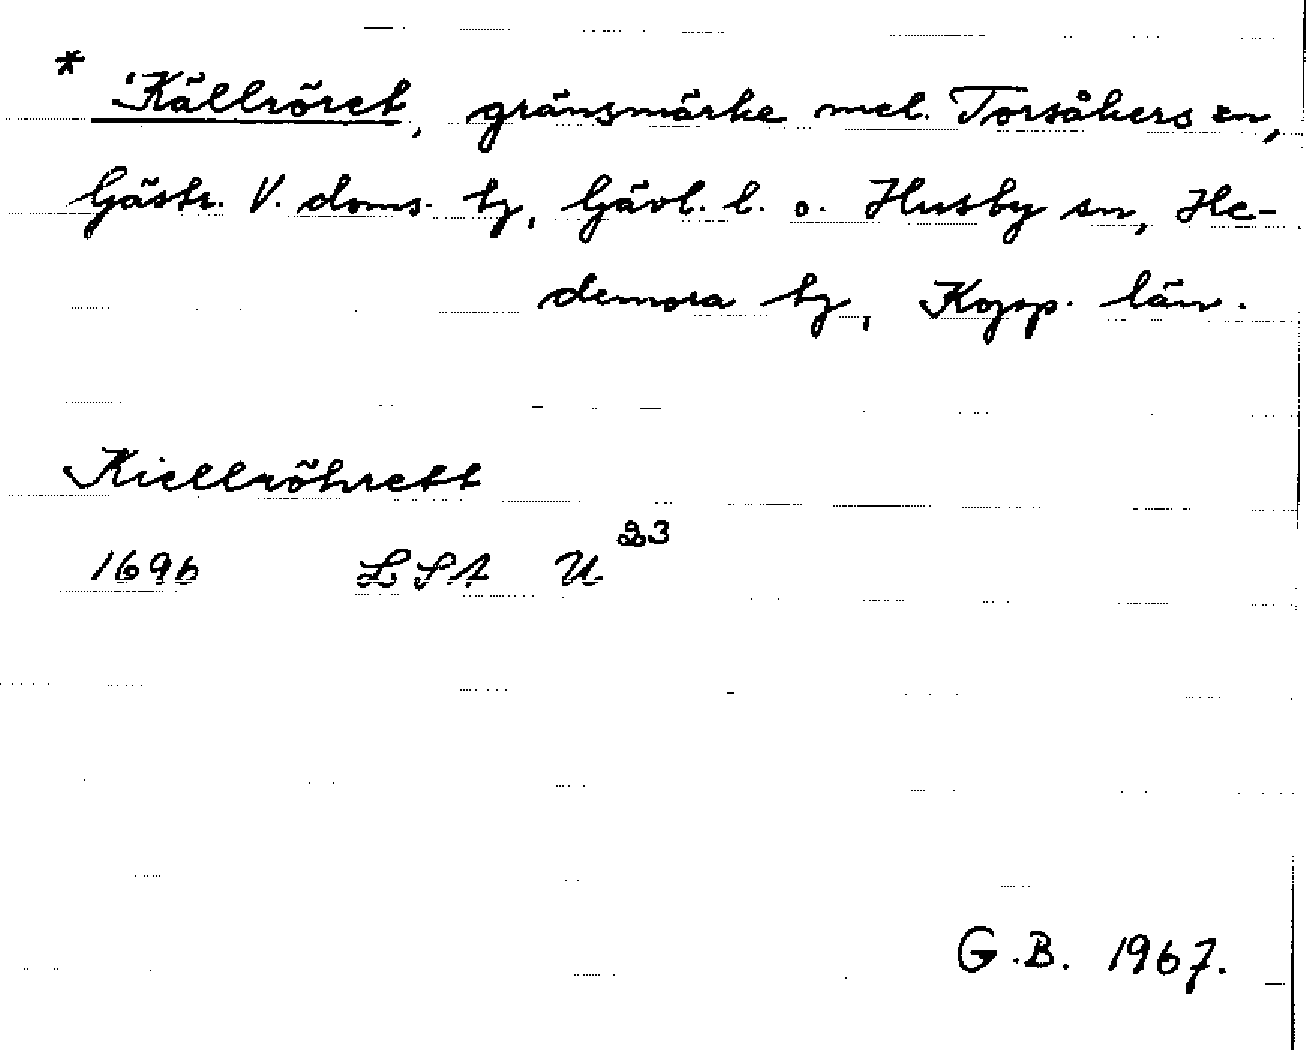 * Källröret, gränsmärke mel. Torsåkers sn,
Gästr. V. doms. tg, Gävl. l. o. Husby sn, He-
demora tg, Kopp. län.
Kiellröhrett
1696 LSA U²³
G.B. 1967.